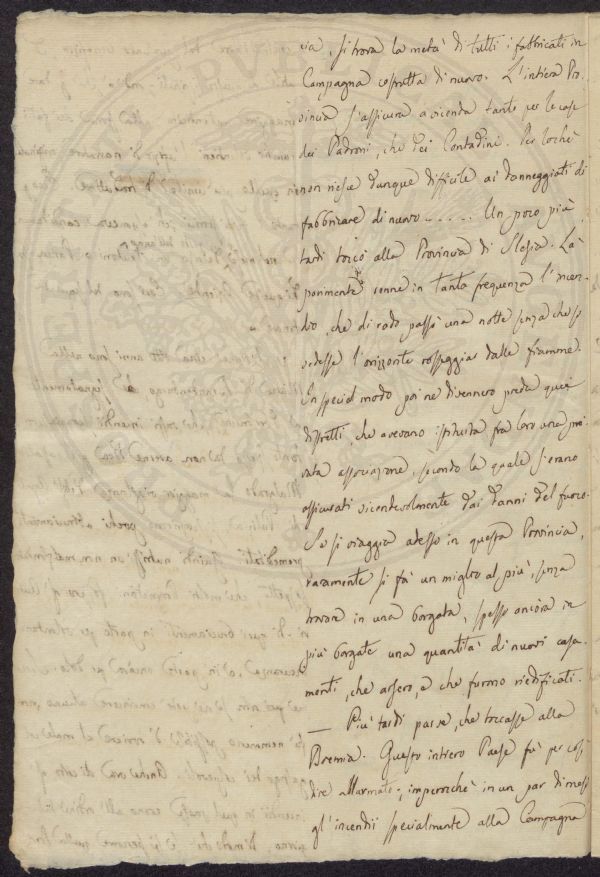 cia, si trova la metà di tutti i fabbricati in
Campagna costrutta di nuovo. L'intiera Pro-
vincia s'assicura a vicenda tanto per le case
dei Padroni, che dei Contadini. Per lochè
non riesce dunque difficile ai danneggiati di
fabbricare di nuovo ----- Un poco più
tardi toccò alla Provincia di Slesia. Là
parimente venne in tanta frequenza l'incen-
dio, che di rado passò una notte senza che si
vedesse l'orizzonte rosseggiar dalle fiamme.
In special modo poi ne divennero preda quei
distretti, che avevano istituita fra loro una pri-
vata associazione, secondo la quale s'erano
assicurati vicendevolmente dai danni del fuoco.
Se si viaggia adesso in questa Provincia,
raramente si fà un miglio al più, senza
trovare in una borgata, spesso ancora in
più borgate una quantità di nuovi casa-
menti, che arsero, e che furono riedificati.
— Più tardi parve, che toccasse alla
Boemia. Questo intiero Paese fù per così
dire allarmato; imperrochè in un par di mesi
gl'incendii specialmente alla Campagna